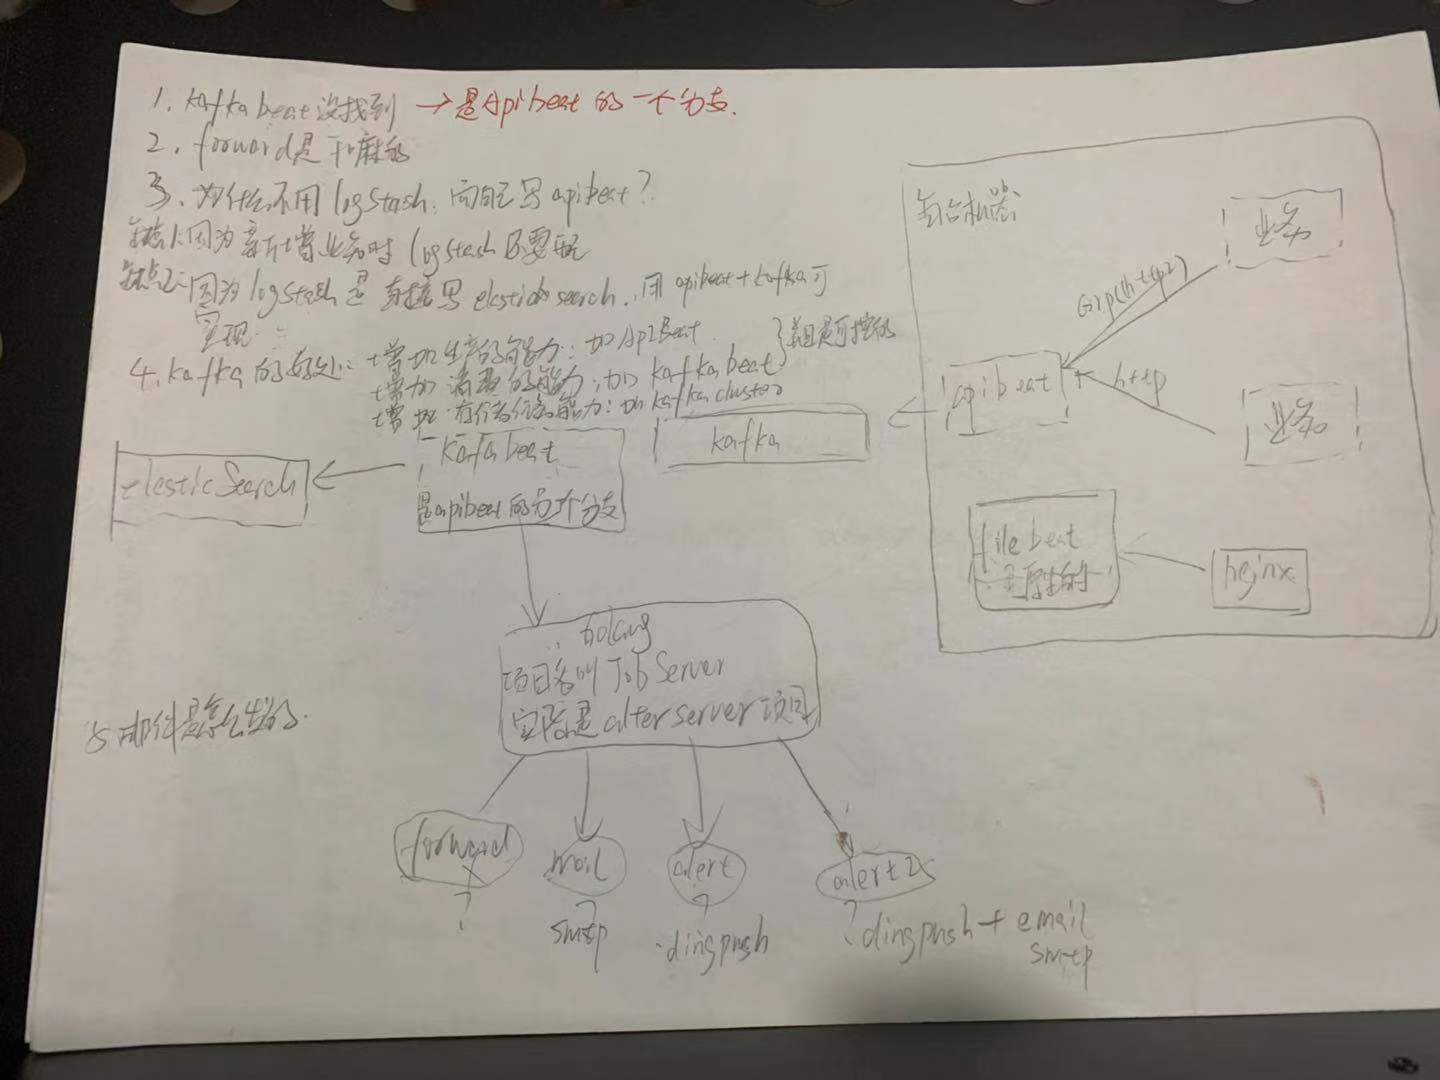 1. kafka beat 没找到 → 是Apibeat 的一个分支.
2. forword是干嘛的
3. 为什么不用 logstash. 而自己写 apibeat?
缺点1:因为新增业务时 logstash 还要配
缺点2:因为 logstash 是直接写 elastic search. 用 apibeat+kafka可
实现
4. kafka 的好处: 增加生产的能力: 加 ApiBeat
增加 消费的能力: 加 kafka beat
增加 存储的能力: 加 kafka cluster
每台机器
业务
Grpc(http2)
apibeat
http
业务
kafka
kafabeat
是apibeat的另一个分支
elastic Search
file beat
是原生的
nginx
项目名叫 Job Server
实际是 alter server 项目
5 邮件是怎么发的.
forword
?
mail
smtp
alert
?
dingpush
alert2
? dingpush + email
smtp